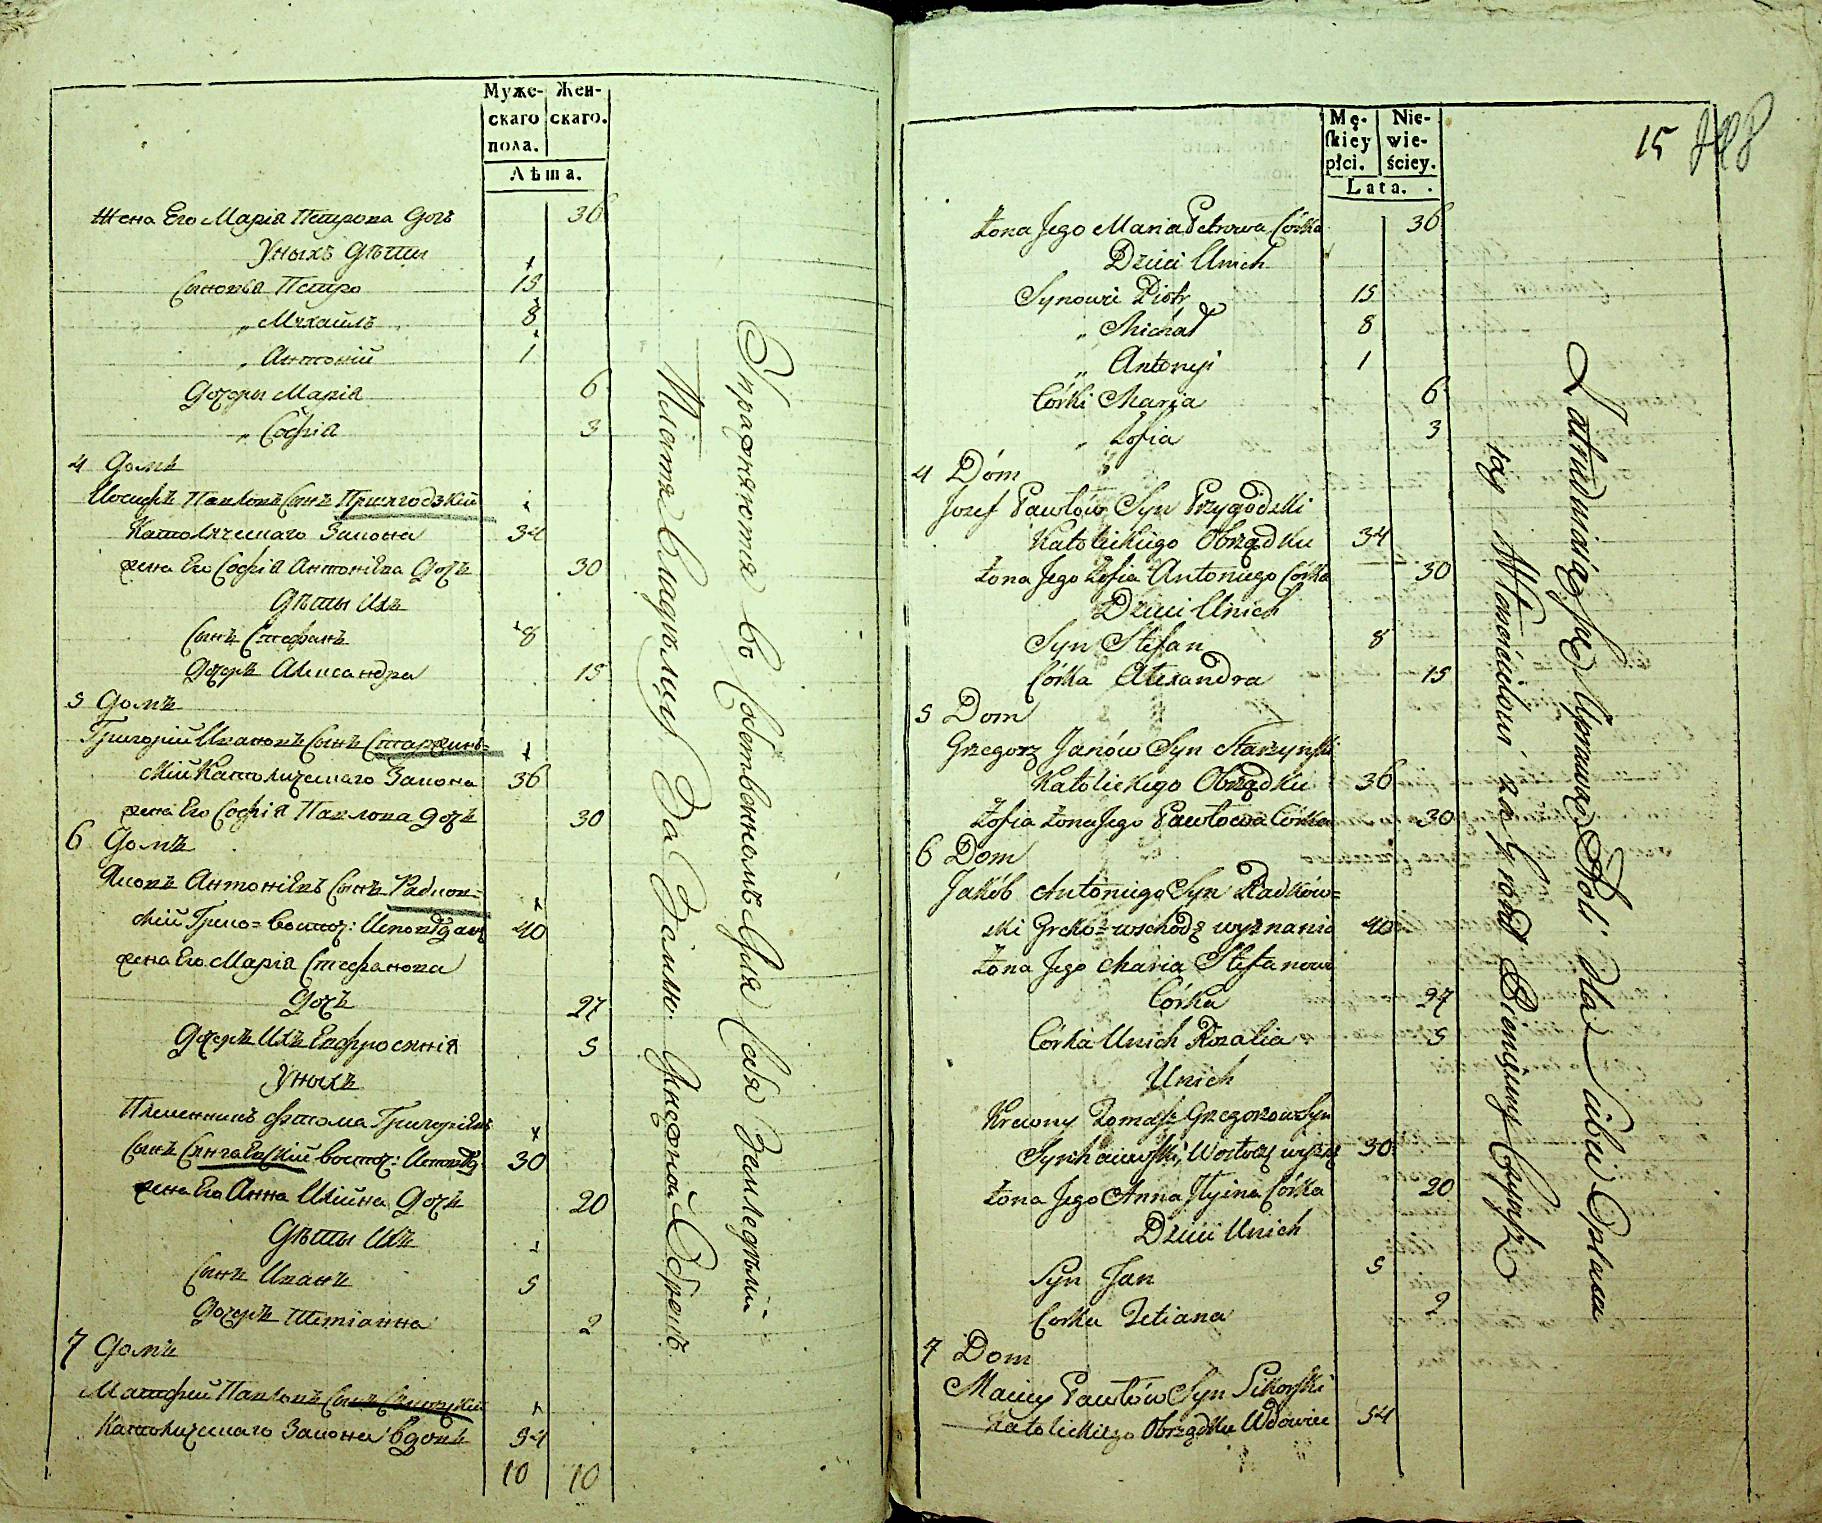 Муже- Жен-
скаго скаго.
пола.
Лѣта.
Жена Его Марія Петрова Дочь 36
У ныхъ дѣти
Сыновья Петро 15
„ Михаилъ 8
„ Антоній 1
Дочеры Марія 6
„ Софія 3
4 Домъ
Иосифъ Павловъ Сынъ Пржигодзкій
Католическаго Закона 34
жена Его Софія Антоніева Дочь 30
Дѣты Ихъ
Сынъ Стефанъ 8
Дочерь Александра 15
5 Домъ
Григорій Ивановъ Сынъ Старжинь=
скій Католическаго Закона 36
жена Его Софія Павлова дочь 30
6 Домъ
Яковъ Антоніевъ Сынъ Радков=
скій Греко=восточ: Исповѣдан 40
жена Его Марія Стефанова
Дочь 27
Дочерь Ихъ Евфросинія 5
У ныхъ
Племенникъ Фтома Григорьевъ
Сынъ восточ: Исповѣд 30
жена Его Анна Илійна Дочь 20
Дѣты Ихъ
Сынъ Иванъ 5
Дочерь Тетіанна 2
7 Домъ
Матфей Павловъ Сынъ Сикорскій
Католическаго Закона вдовъ 54
10 10
Упражняются во Собственномъ Для Себя Земледѣліи
Платя Владѣльцу За Землю Денежной Оброкъ
Mę- Nie-
ſkiey wie-
płci. ściey.
Lata.
15
Żona Jego Maria Petrowa Córka 36
Dzieci Unich
Synowie Piotr 15
„ Michał 8
„ Antonyi 1
Córki Marja 6
„ Zofia 3
4 Dóm
Jozef Pawłów Syn Przygódzki
Katolickiego Obrządku 34
Żona Jego Zofia Antoniego Córka 30
Dzieci Unich
Syn Stefan 8
Córka Alexandra 15
5 Dom
Grzegorz Janów Syn Starzyński
Katolickiego Obrządku 36
Zofia Żona Jego Pawłowa Córka 30
6 Dom
Jakób Antoniego Syn Radków=
ski Greko=wschodz wyznania 40
Żona Jego Maria Stefanowa
Córka 27
Córka Unich Rozalia 5
Unich
Krewny Tomasz Grzegorzow Syn
30
Żona Jego Anna Ilyina Córka 20
Dzieci Unich
Syn Jan 5
Corka Tetiana 2
7 Dom
Maciey Pawłów Syn Sikorſki
Katolickiego Obrządku Wdowiec 54
Zatrudniaią się Uprawą Roli Dla Siebie Opłaca
iąc Włascicielowi za Grónt Pienięzny Czynsz